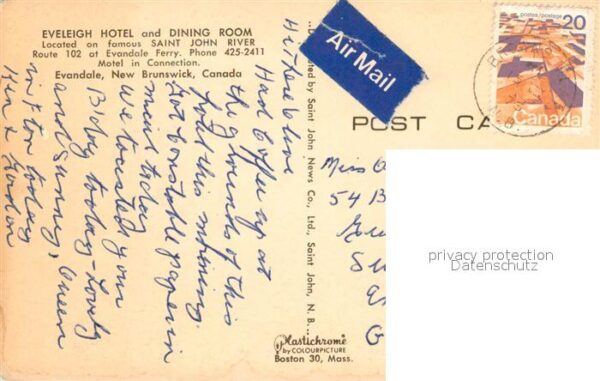 EVELEIGH HOTEL and DINING ROOM
Located on famous SAINT JOHN RIVER
Route 102 at Evandale Ferry. Phone 425-2411
Motel in Connection.
Evandale, New Brunswick, Canada
Hi there
Had Coffee up at
the grounds of this
hotel this morning.
Got
today
We toasted your
B'day today - Lovely
and sunny, Queen
in F'ton today
Ken & Gordon
by Saint John News Co., Ltd., Saint John, N. B.
Plastichrome
by COLOURPICTURE
Boston 30, Mass.
Air Mail
POST CA
postes/postage
20
Canada
Miss
54 B
privacy protection
Datenschutz